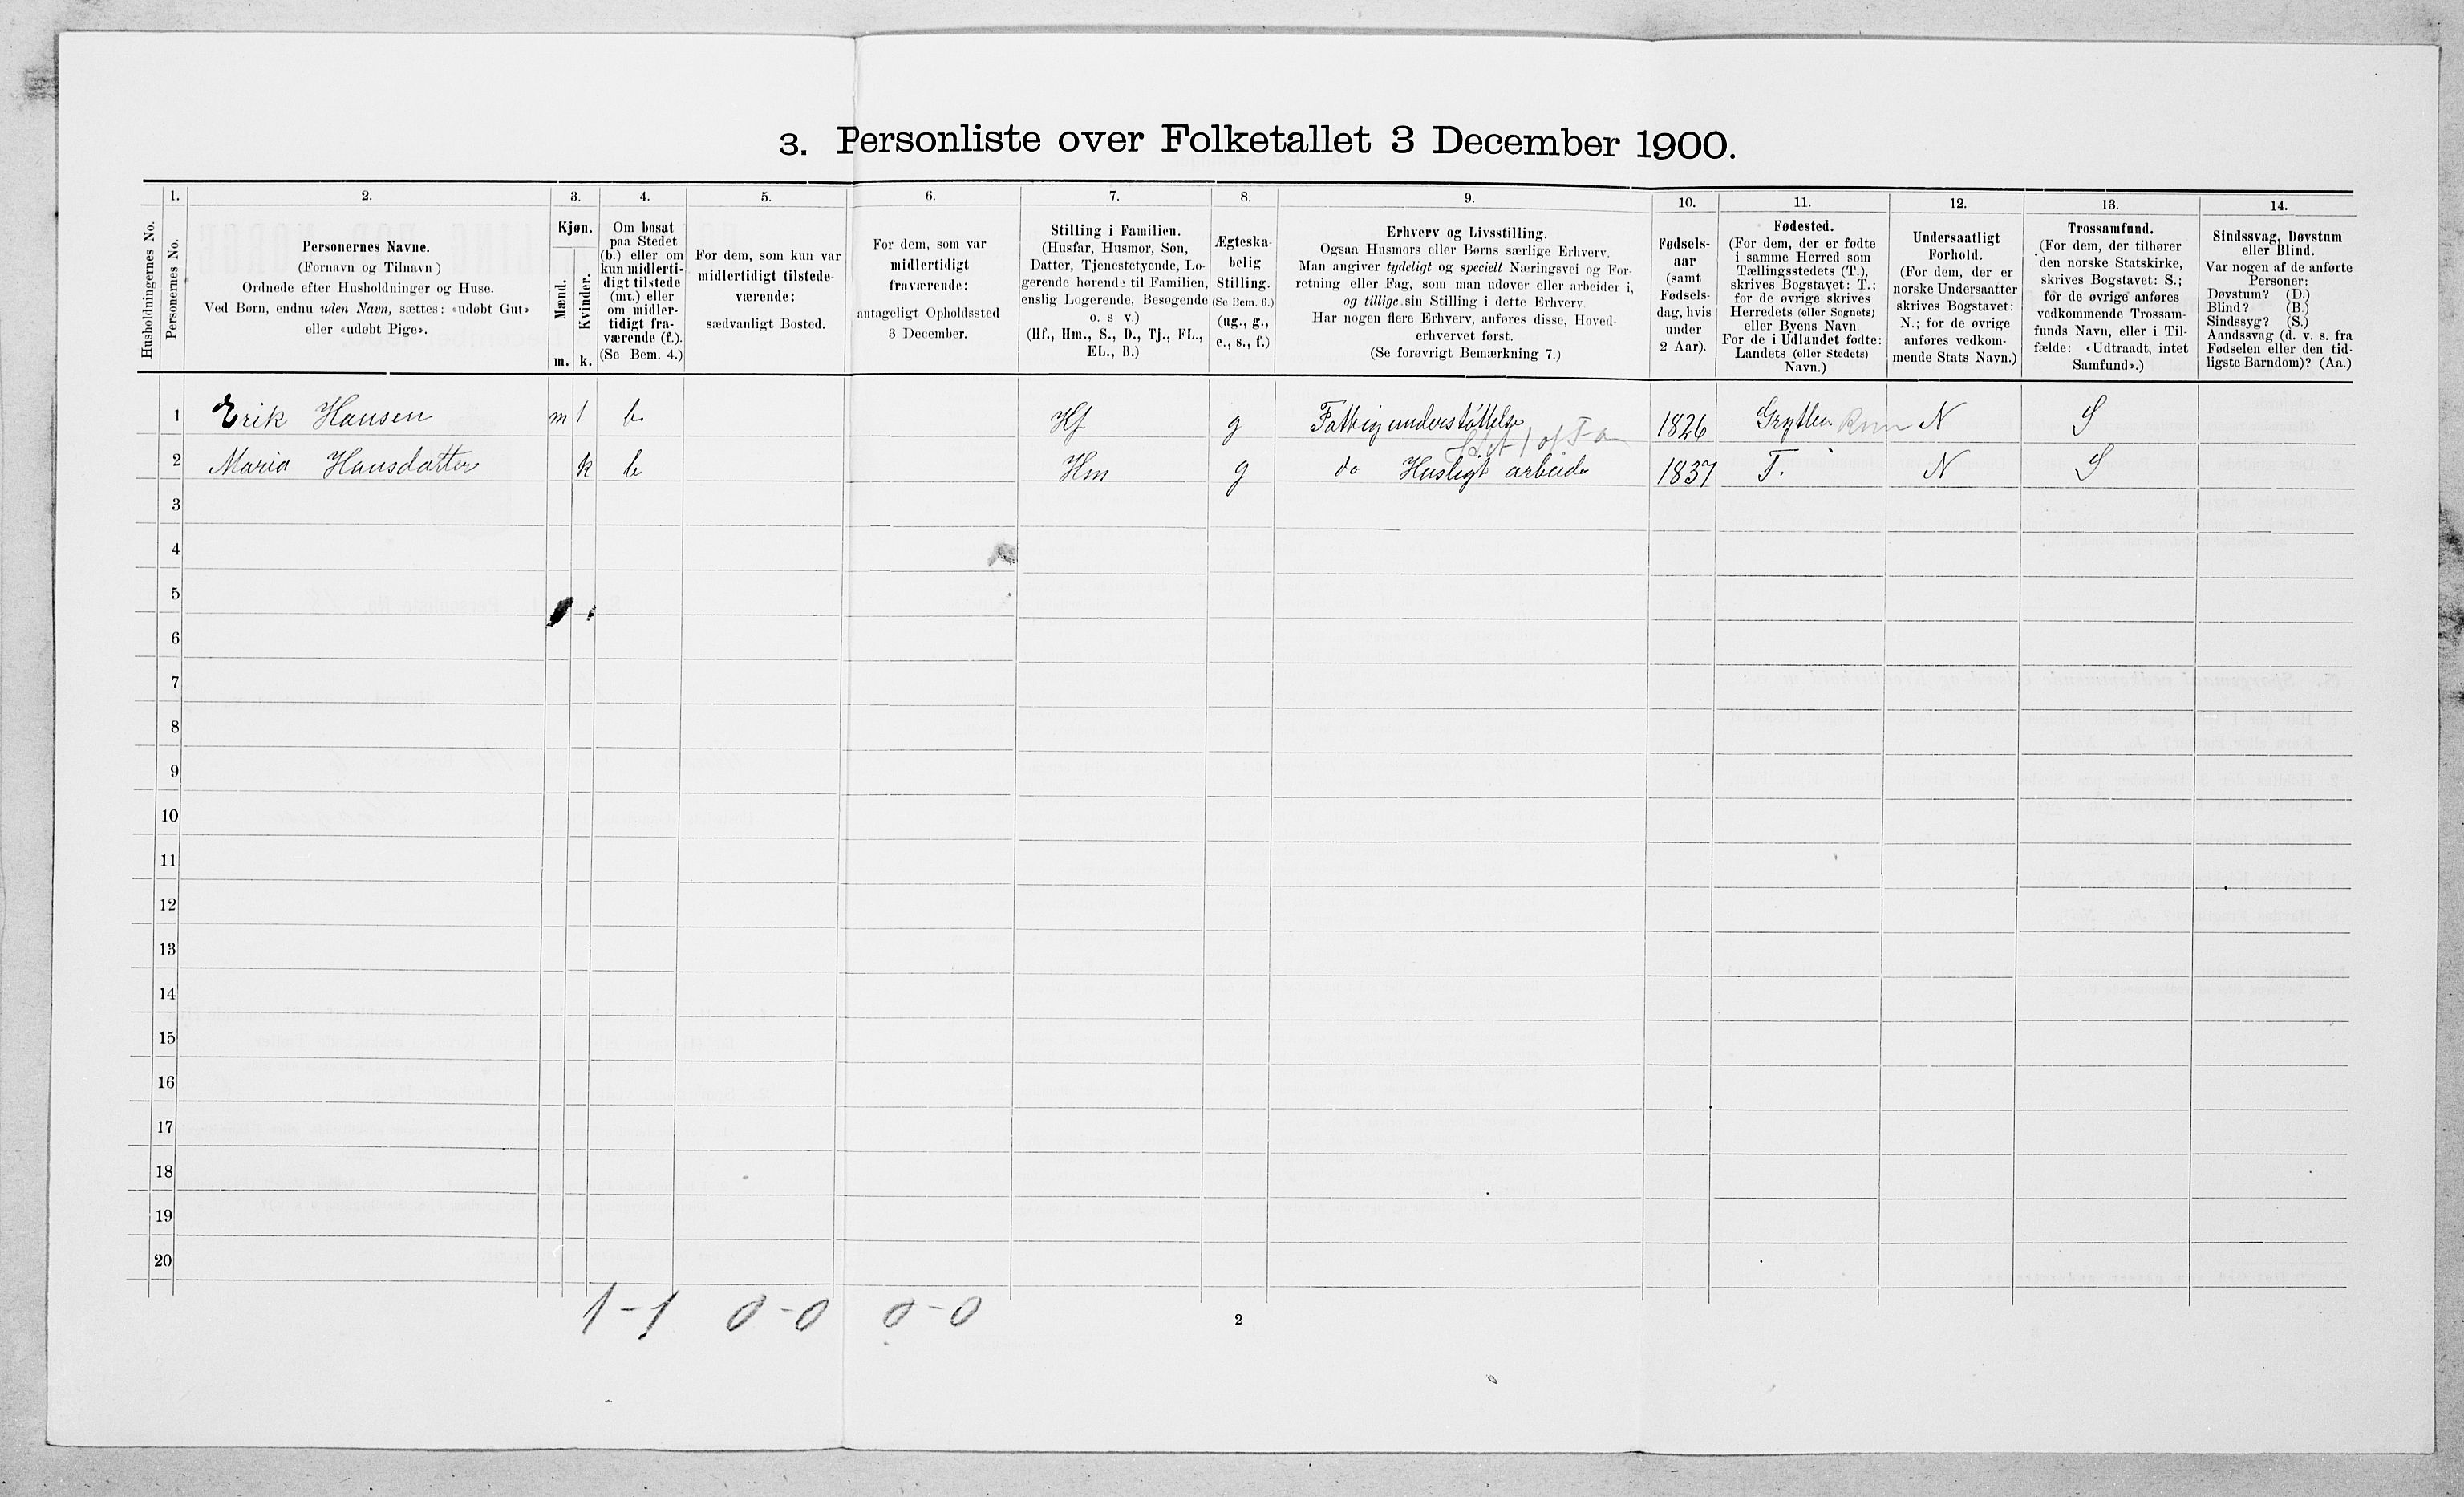 3. Personliste over Folketallet 3 December 1900.
1. 2. 3. 4. 5. 6. 7. 8. 9. 10. 11. 12. 13. 14.
Husholdningernes No.
Personernes No.
Personernes Navne.
(Fornavn og Tilnavn)
Ordnede efter Husholdninger og Huse.
Ved Børn, endnu uden Navn, sættes: «udøbt Gut»
eller «udøbt Pige».
Kjøn.
Mænd.
Kvinder.
m. k.
Om bosat
paa Stedet
(b.) eller om
kun midlerti-
digt tilstede
(mt.) eller
om midler-
tidigt fra-
værende (f.).
(Se Bem. 4.)
For dem, som kun var
midlertidigt tilstede-
værende:
sædvanligt Bosted.
For dem, som var
midlertidigt
fraværende:
antageligt Opholdssted
3 December.
Stilling i Familien.
(Husfar, Husmor, Søn,
Datter, Tjenestetyende, Lo-
gerende hørende til Familien,
enslig Logerende, Besøgende
o. s v.)
(Hf., Hm., S., D., Tj., FL.,
EL., B.)
Ægteska-
belig
Stilling.
(Se Bem. 6.)
(ug., g.,
e., s., f.)
Erhverv og Livsstilling.
Ogsaa Husmors eller Børns særlige Erhverv.
Man angiver tydeligt og specielt Næringsvei og For-
retning eller Fag, som man udøver eller arbeider i,
og tillige sin Stilling i dette Erhverv
Har nogen flere Erhverv, anføres disse, Hoved-
erhvervet først.
(Se forøvrigt Bemærkning 7.)
Fødsels-
aar
(samt
Fødsels-
dag, hvis
under
2 Aar).
Fødested.
(For dem, der er fødte
i samme Herred som
Tællingsstedets (T.),
skrives Bogstavet: T.;
for de øvrige skrives
Herredets (eller Sognets)
eller Byens Navn
For de i Udlandet fødte:
Landets (eller Stedets)
Navn.)
Undersaatligt
Forhold.
(For dem, der er
norske Undersaatter
skrives Bogstavet:
N.; for de øvrige
anføres vedkom-
mende Stats Navn.)
Trossamfund.
(For dem, der tilhører
den norske Statskirke,
skrives Bogstavet: S.;
for de øvrige anføres
vedkommende Trossam-
funds Navn, eller i Til-
fælde: «Udtraadt, intet
Samfund».)
Sindssvag, Døvstum
eller Blind.
Var nogen af de anførte
Personer:
Døvstum? (D.)
Blind? (B.)
Sindssyg? (S.)
Aandssvag (d. v. s. fra
Fødselen eller den tid-
ligste Barndom)? (Aa.)
1 Erik Hansen m 1 b Hf g Fattigunderstøttelse 1826 Grytten N S
2 Maria Hansdatter k b Hm g do Husligt arbeide 1837 T. N S
3
4
5
6
7
8
9
10
11
12
13
14
15
16
17
18
19
20
1-1 0-0 0-0
2